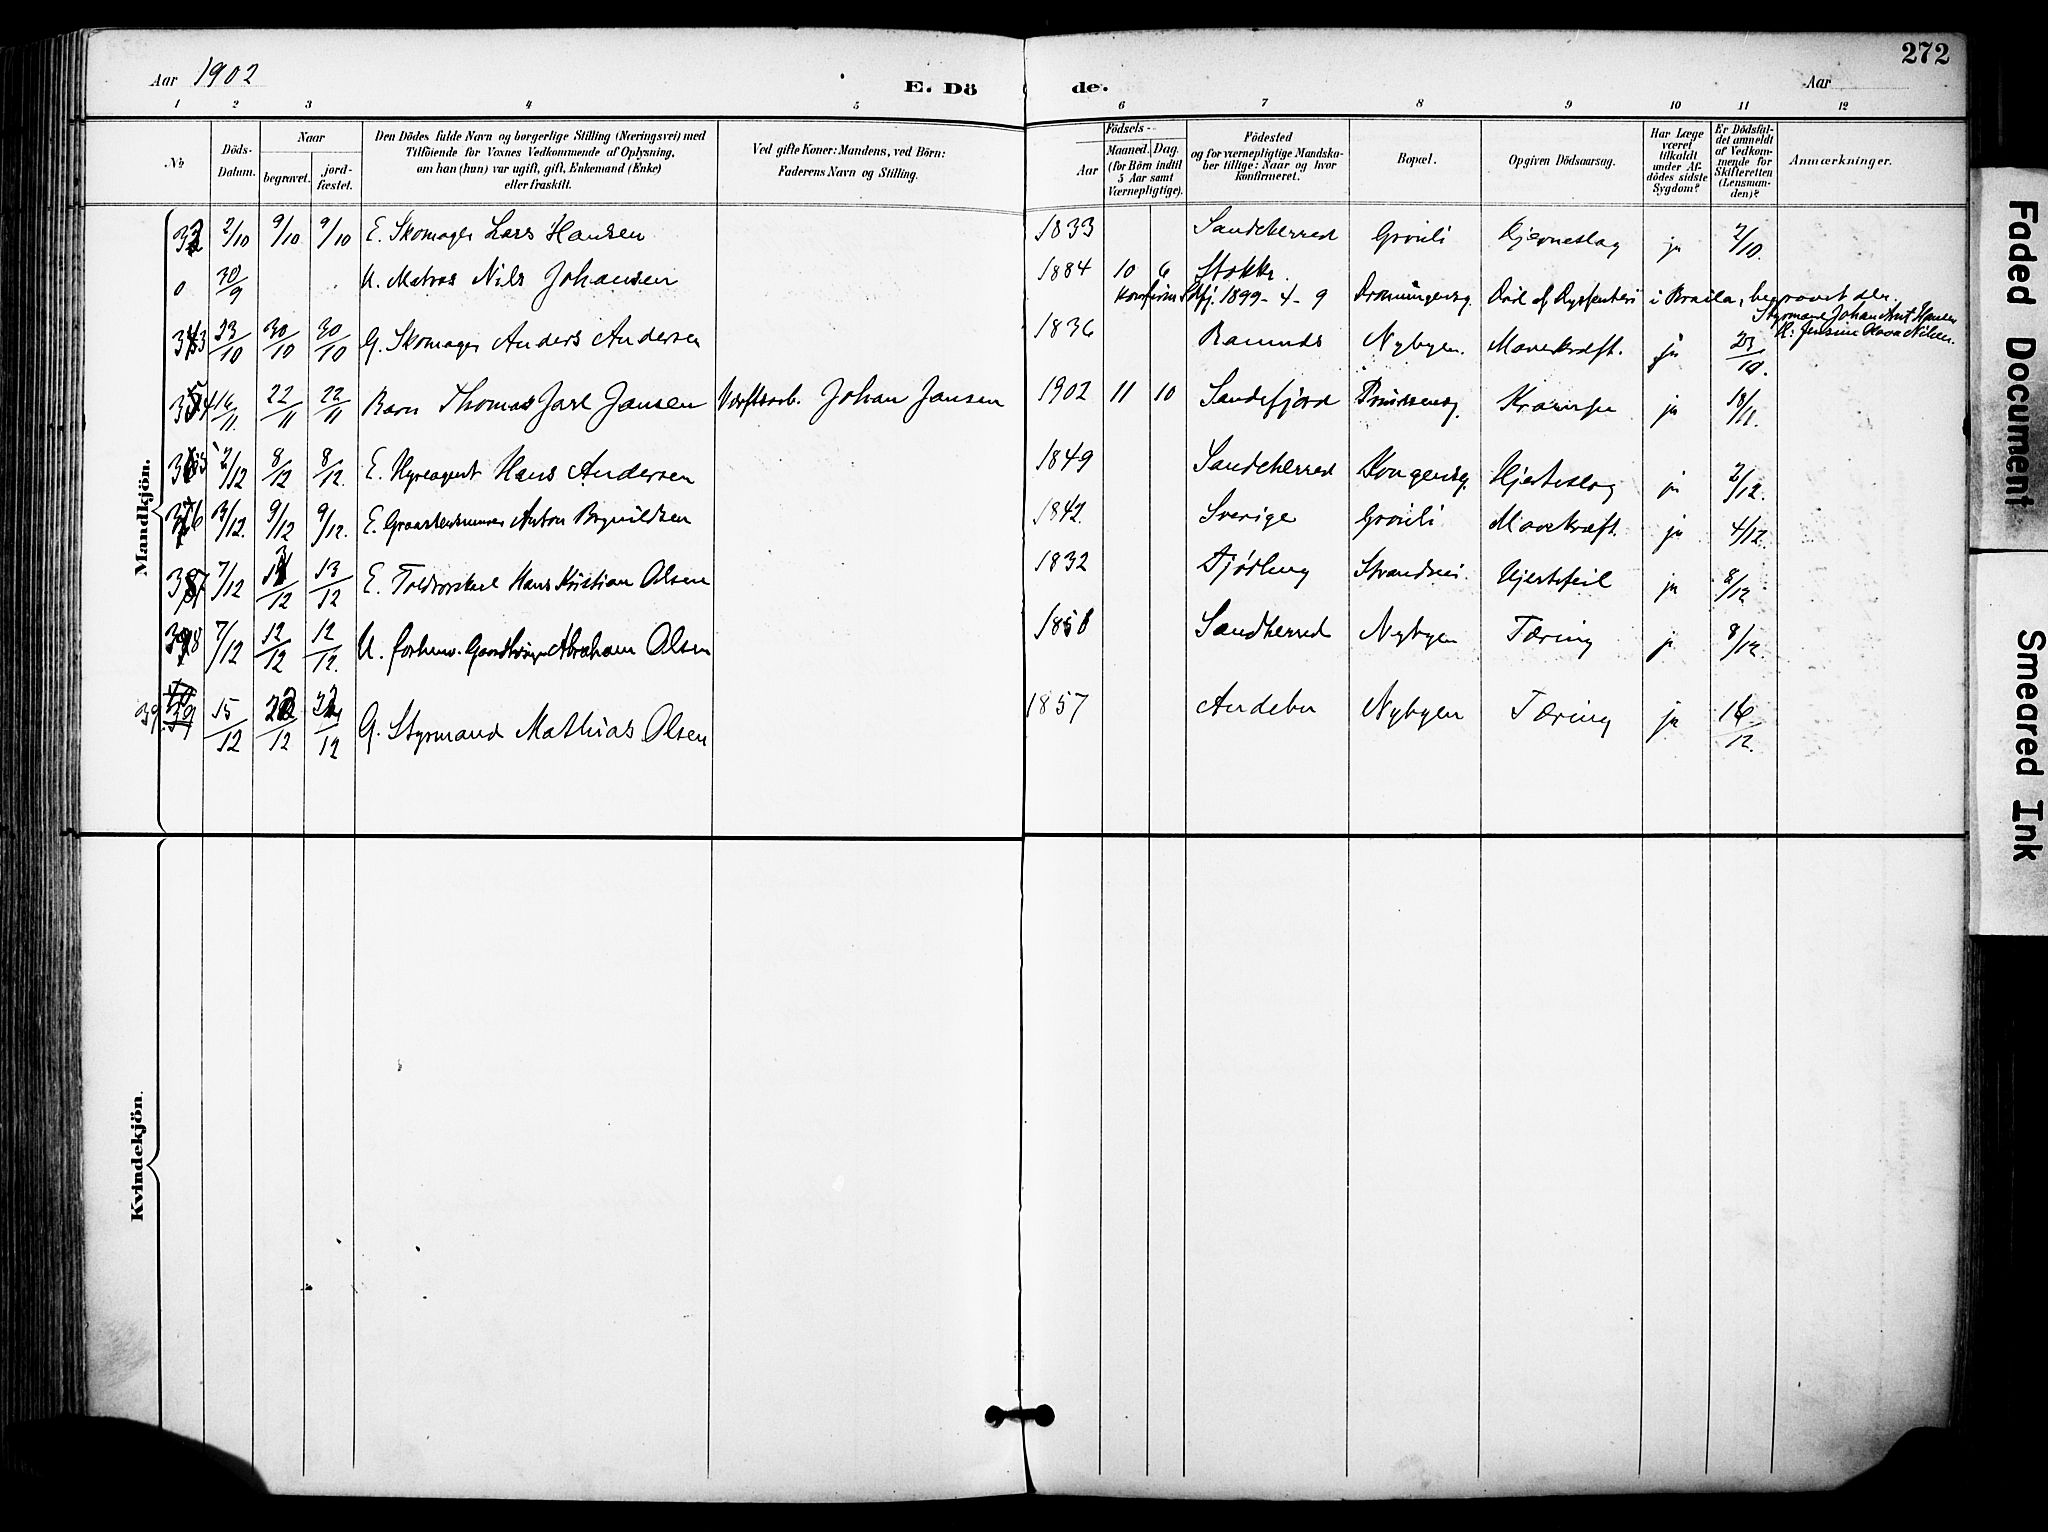 272
Aar 1902
E. Dö de.
Aar
1 2 3 4 5 6 7 8 9 10 11 12
No
Döds-Datum.
Naar
begravet.
jordfæstet.
Den Dödes fulde Navn og borgerlige Stilling (Næringsvei) med
Tilföiende for Voxnes Vedkommende af Oplysning,
om han (hun) var ugift, gift, Enkemand (Enke)
eller fraskilt.
Ved gifte Koner: Mandens, ved Börn:
Faderens Navn og Stilling.
Födsels-
Aar
Maaned. Dag.
(for Börn indtil
5 Aar samt
Værnepligtige).
Födested
og for værnepligtige Mandska-
ber tillige: Naar og hvor
konfirmeret.
Bopæl.
Opgiven Dödsaarsag.
Har Læge
været
tilkaldt
under Af-
dödes sidste
Sygdom?
Er Dödsfal-
det anmeldt
af Vedkom-
mende for
Skifteretten
(Lensman-
den)?
Anmærkninger.
Mandkjön.
32 2/10 9/10 9/10 E. Skomager Lars Hansen 1833 Sandeherred Grönli Hjerneslag ja 2/10
0 30/9 U. Matros Nils Johansen 1884 10 6 Stokke.
1899-4-9 Dronningensg. Död af Dysenteri i Braila, begravet der.
33 23/10 30/10 30/10 G. Skomager Anders Andersen 1836 Ramnes Nybyen. Mavekræft. ja 23/10.
34 16/11. 22/11 22/11 Barn Thomas Jarl Jansen Værftsarb. Johan Jansen 1902 11 10 Sandefjord Prinsensg. Krampe ja 18/11.
35 2/12 8/12 8/12. E. Hyreagent Hans Andersen 1849 Sandeherred Kongensg. Hjerteslag ja 2/12.
36 3/12. 9/12 9/12. E. Anton Brynildsen 1842. Sverige Grönli Mavekræft. ja 4/12.
37 7/12 13/12 13/12 E. Hans Kristian Olsen 1832 Tjödling Strandvei. Hjertefeil ja 8/12
38 7/12 12/12 12/12. U. forhenv. Abraham Olsen 1858 Sandherred Nybyen Tæring ja 8/12.
39 15/12 22/12 22/12 G. Styrmand Mathias Olsen 1857 Andebu Nybyen Tæring ja 16/12.
Kvindekjön.
Faded Document
Smeared Ink